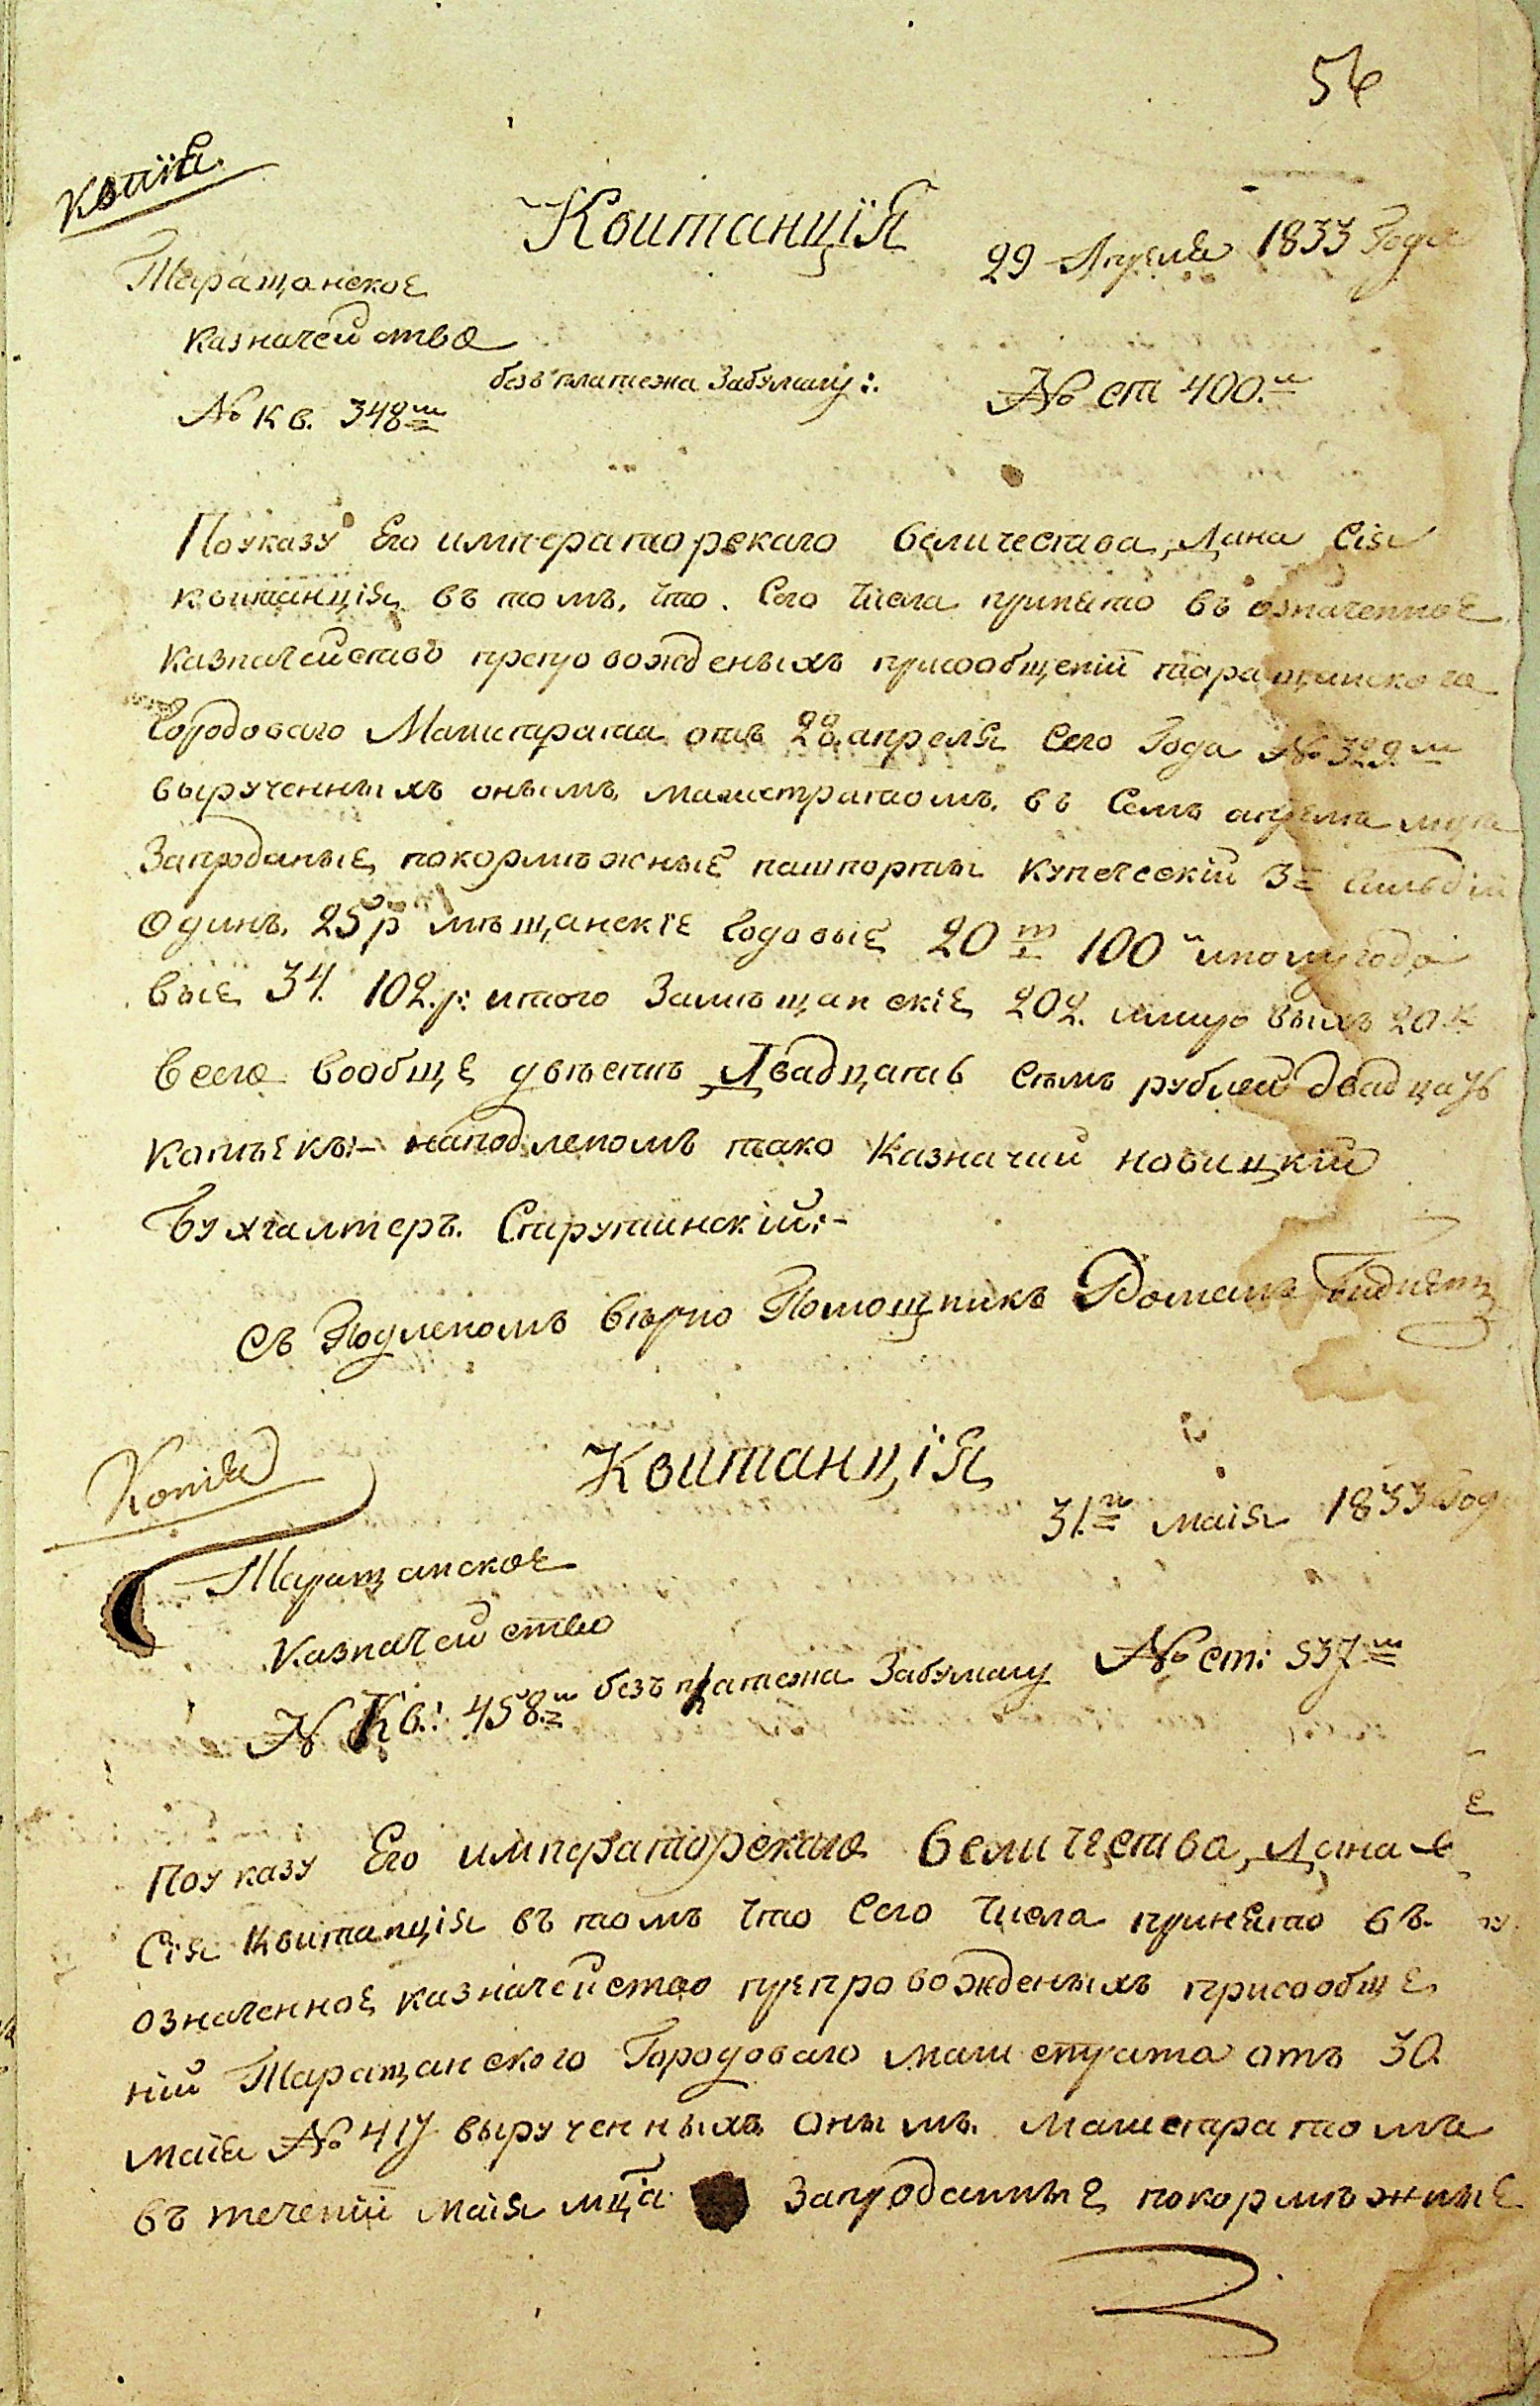 56
Копія
Квитанція
29 Апреля 1833 Года
Таращанское
казначейство
безъ платежа за бумагу:
№ кв. 348й
№ ст 400.й
По указу Его императорскаго величества, Дана Сія
квитанція въ томъ, что Сего числа принято въ означенное
казначейство препровожденыхъ присообщеній таращанскаго
Городоваго Магистрата отъ 28 апреля Сего Года № 329.м
вырученныхъ онымъ магистратомъ въ Семъ апреле мцѣ
Запроданые покормѣжные пашпорты купеческій 3й гильдіи
одинъ 25 р мѣщанскіе годовые 20т 100 и полугодо
вые 34. 102.р: итого Замѣщанскіе 202. 20 к
всего вообще двѣстѣ Двадцать сѣмъ рублей двадцать
копѣекъ:- наподленомъ тако Казначей новицкий
Бухгалтеръ. Струтинский:-
Съ Подленомъ вѣрно Помощникъ Романъ
Копія
Квитанція
31.го маія 1833 Года
Таращанское
казначейство
№ Кв.: 458.й безъ платежа Забумагу № ст: 537й
По указу Его императорскаго величества, Дана
Сія квитанція въ томъ что Сего числа принято въ
означенное казначейство препровожденыхъ присообще
ній Таращанского Городоваго магистрата отъ 30
маія № 417 вырученныхъ онымъ магистратомъ
въ теченіи маія мца Запроданные покормѣжные